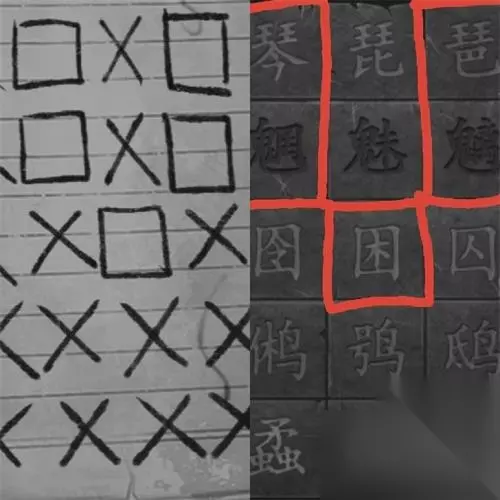 琴 琵 琶
魍 魅 魑
囹 困 囚
鸺 鸮 鸱
蟊